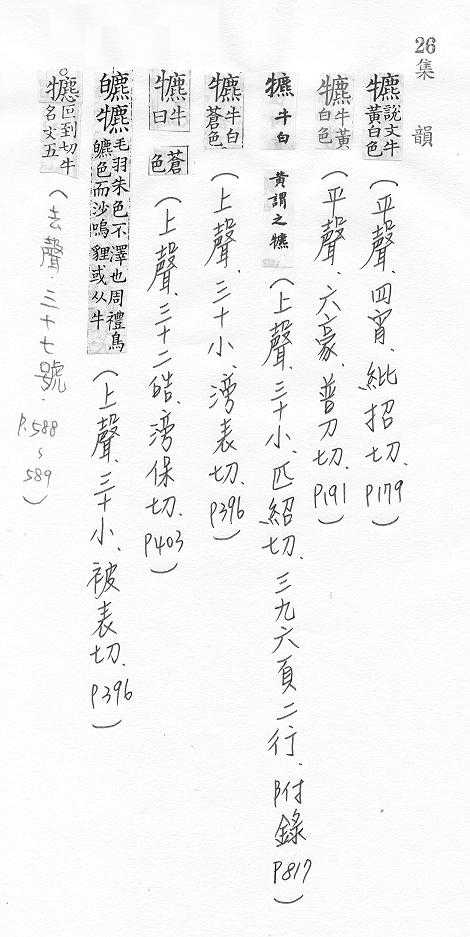 26
集韻
犥說文牛黃白色(平聲、四宵、紕招切、P179)
犥牛黃白色(平聲、六豪、普刀切、P191)
犥牛白黃謂之犥(上聲、三十小、匹紹切、三九六頁二行、附錄P817)
犥牛白蒼色(上聲、三十小、滂表切、P396)
犥牛曰蒼色(上聲、三十二皓、滂保切、P403)
皫犥毛羽朱色不澤也周禮鳥皫色而沙鳴貍或从牛(上聲、三十小、被表切、P396)
叵到切牛名文五(去聲、三十七號、P.588~589)